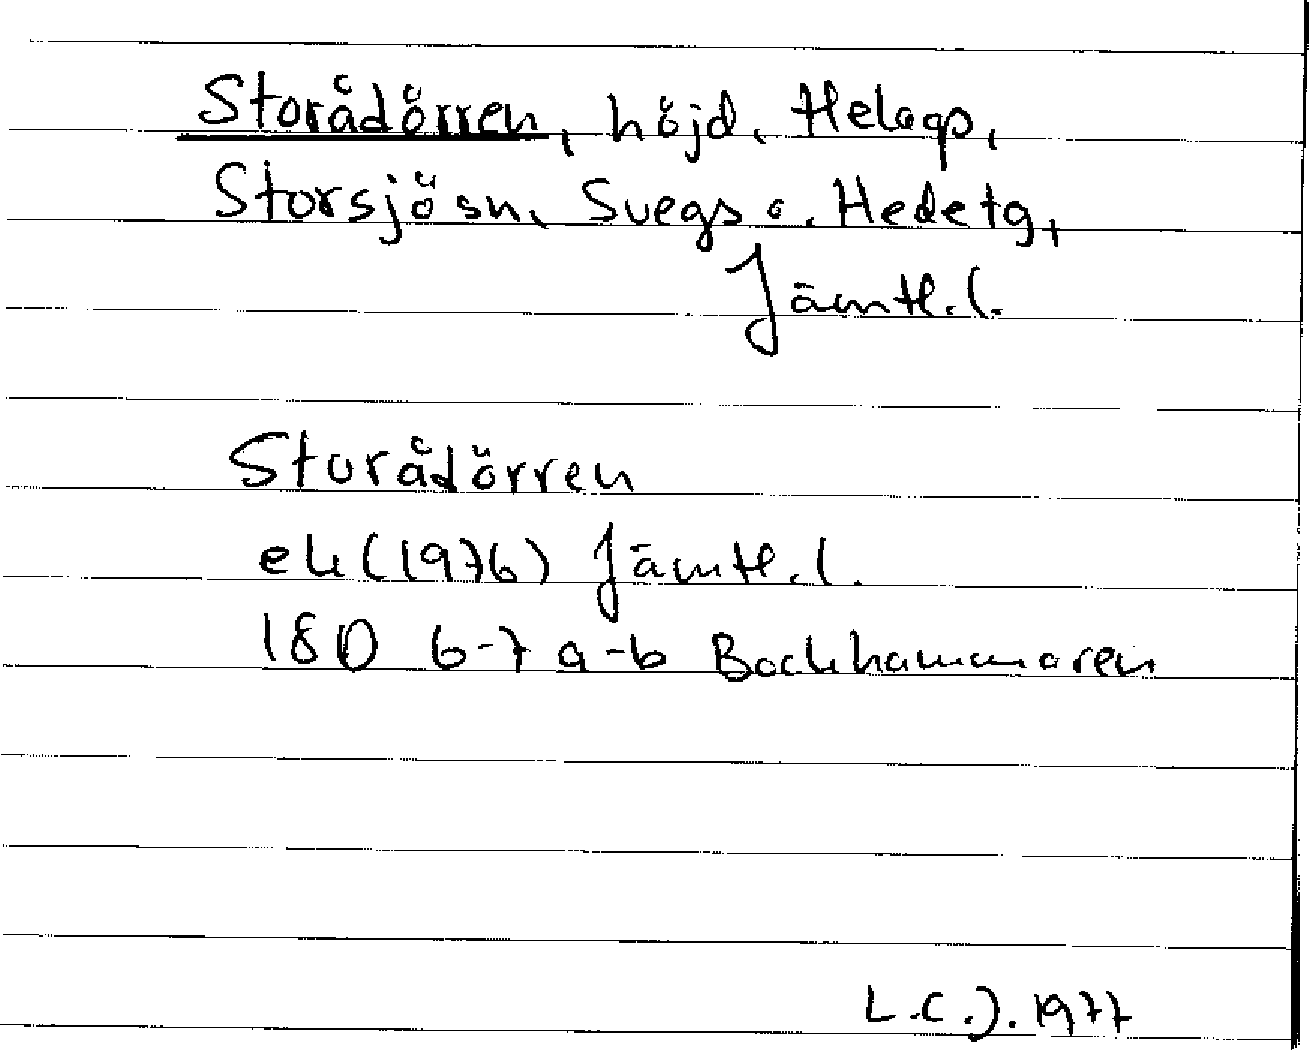 Storådörren, höjd, Helagp,
Storsjö sn, Svegs o. Hedetg,
Jämtl. l.
Storådörren
ek (1976) Jämtl. l.
18D 6-7 a-b Bockhammaren
L.C.J. 1977